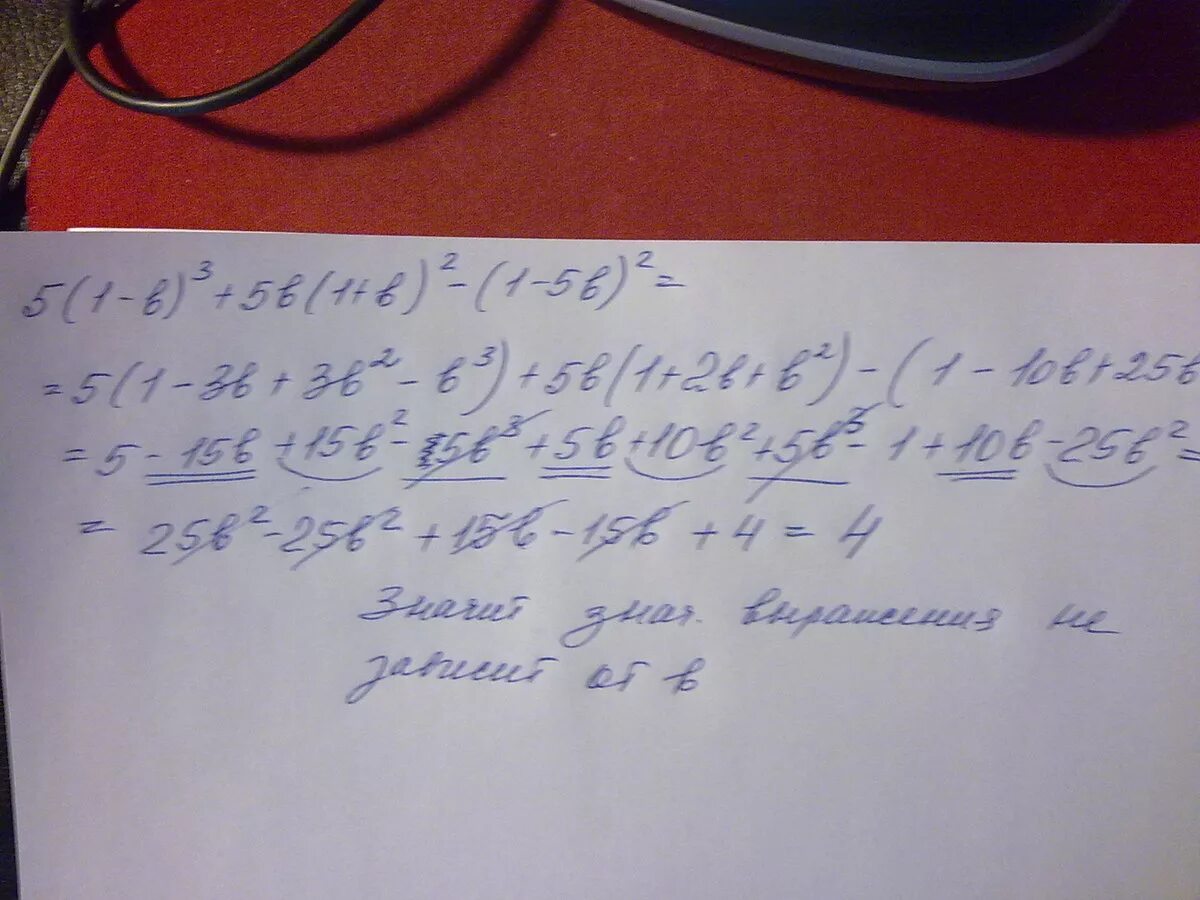 5(1-в)³+5в(1+в)²-(1-5в)²=
=5(1-3в+3в²-в³)+5в(1+2в+в²)-(1-10в+25в
=5-15в+15в²-5в³+5в+10в²+5в³-1+10в-25в²=
=25в²-25в²+15в-15в+4=4
Значит знач. выражения не
зависит от в